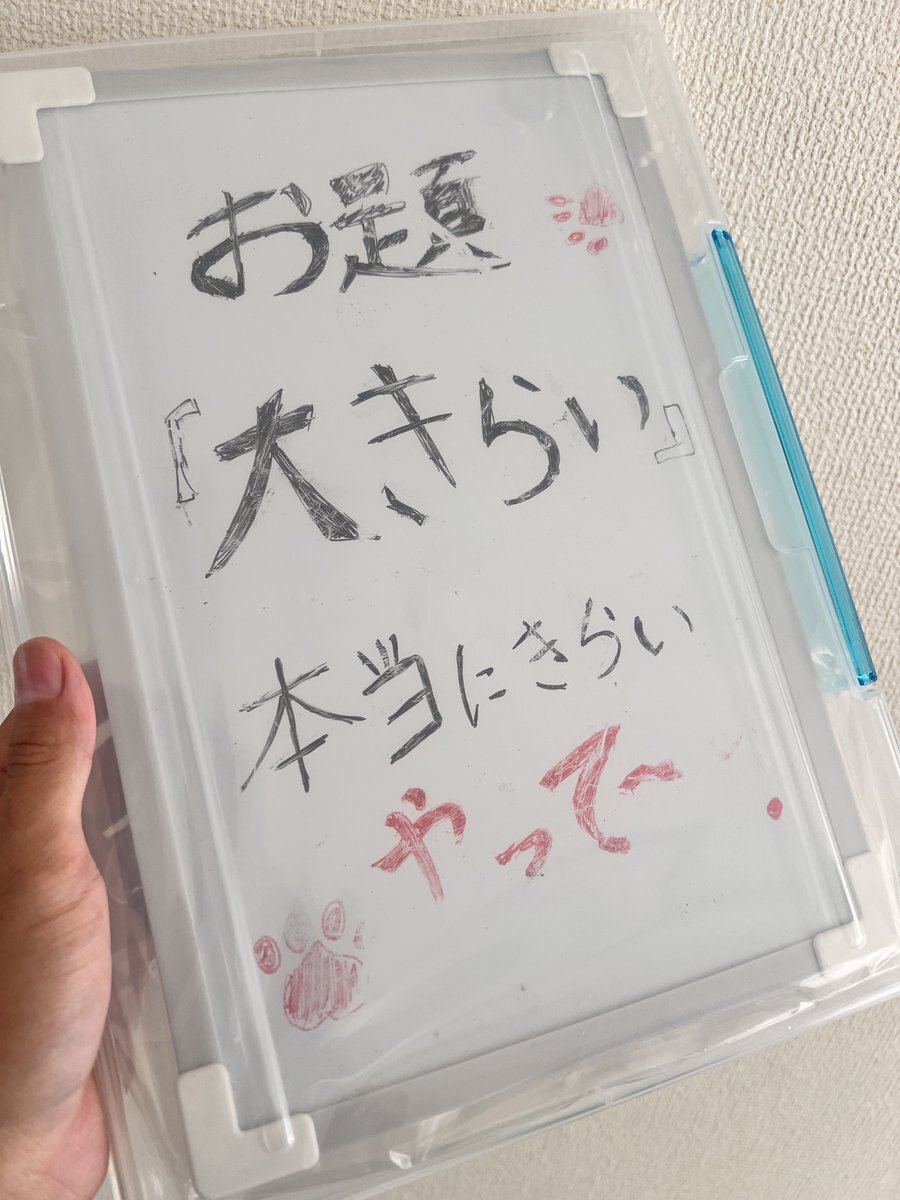 お題
『大きらい』
本当にきらい
やって〜